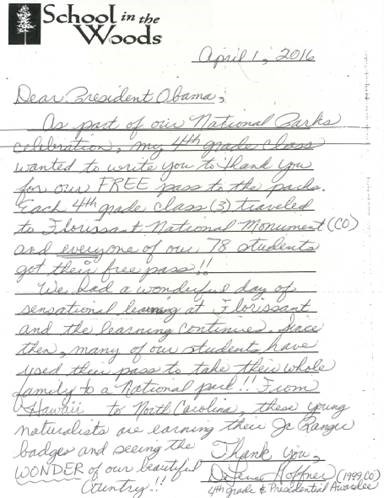 School in the
Woods
April 1, 2016
Dear President Obama,
As part of our National Parks
celebration, my 4th grade class
wanted to write you to thank you
for our FREE pass to the parks.
Each 4th grade class (3) traveled
to Florissant National Monument (CO)
and everyone of our 78 students
got their free pass!!
We had a wonderful day of
sensational learning at Florissant
and the learning continues. Since
then, many of our students have
used their pass to take their whole
family to a National park!! From
Hawaii to North Carolina, these young
naturalists are earning their Jr Ranger
badges and seeing the
WONDER of our beautiful
Country!!
Thank you,
Hoffner (1999, CO)
4th grade & Presidential Awardee